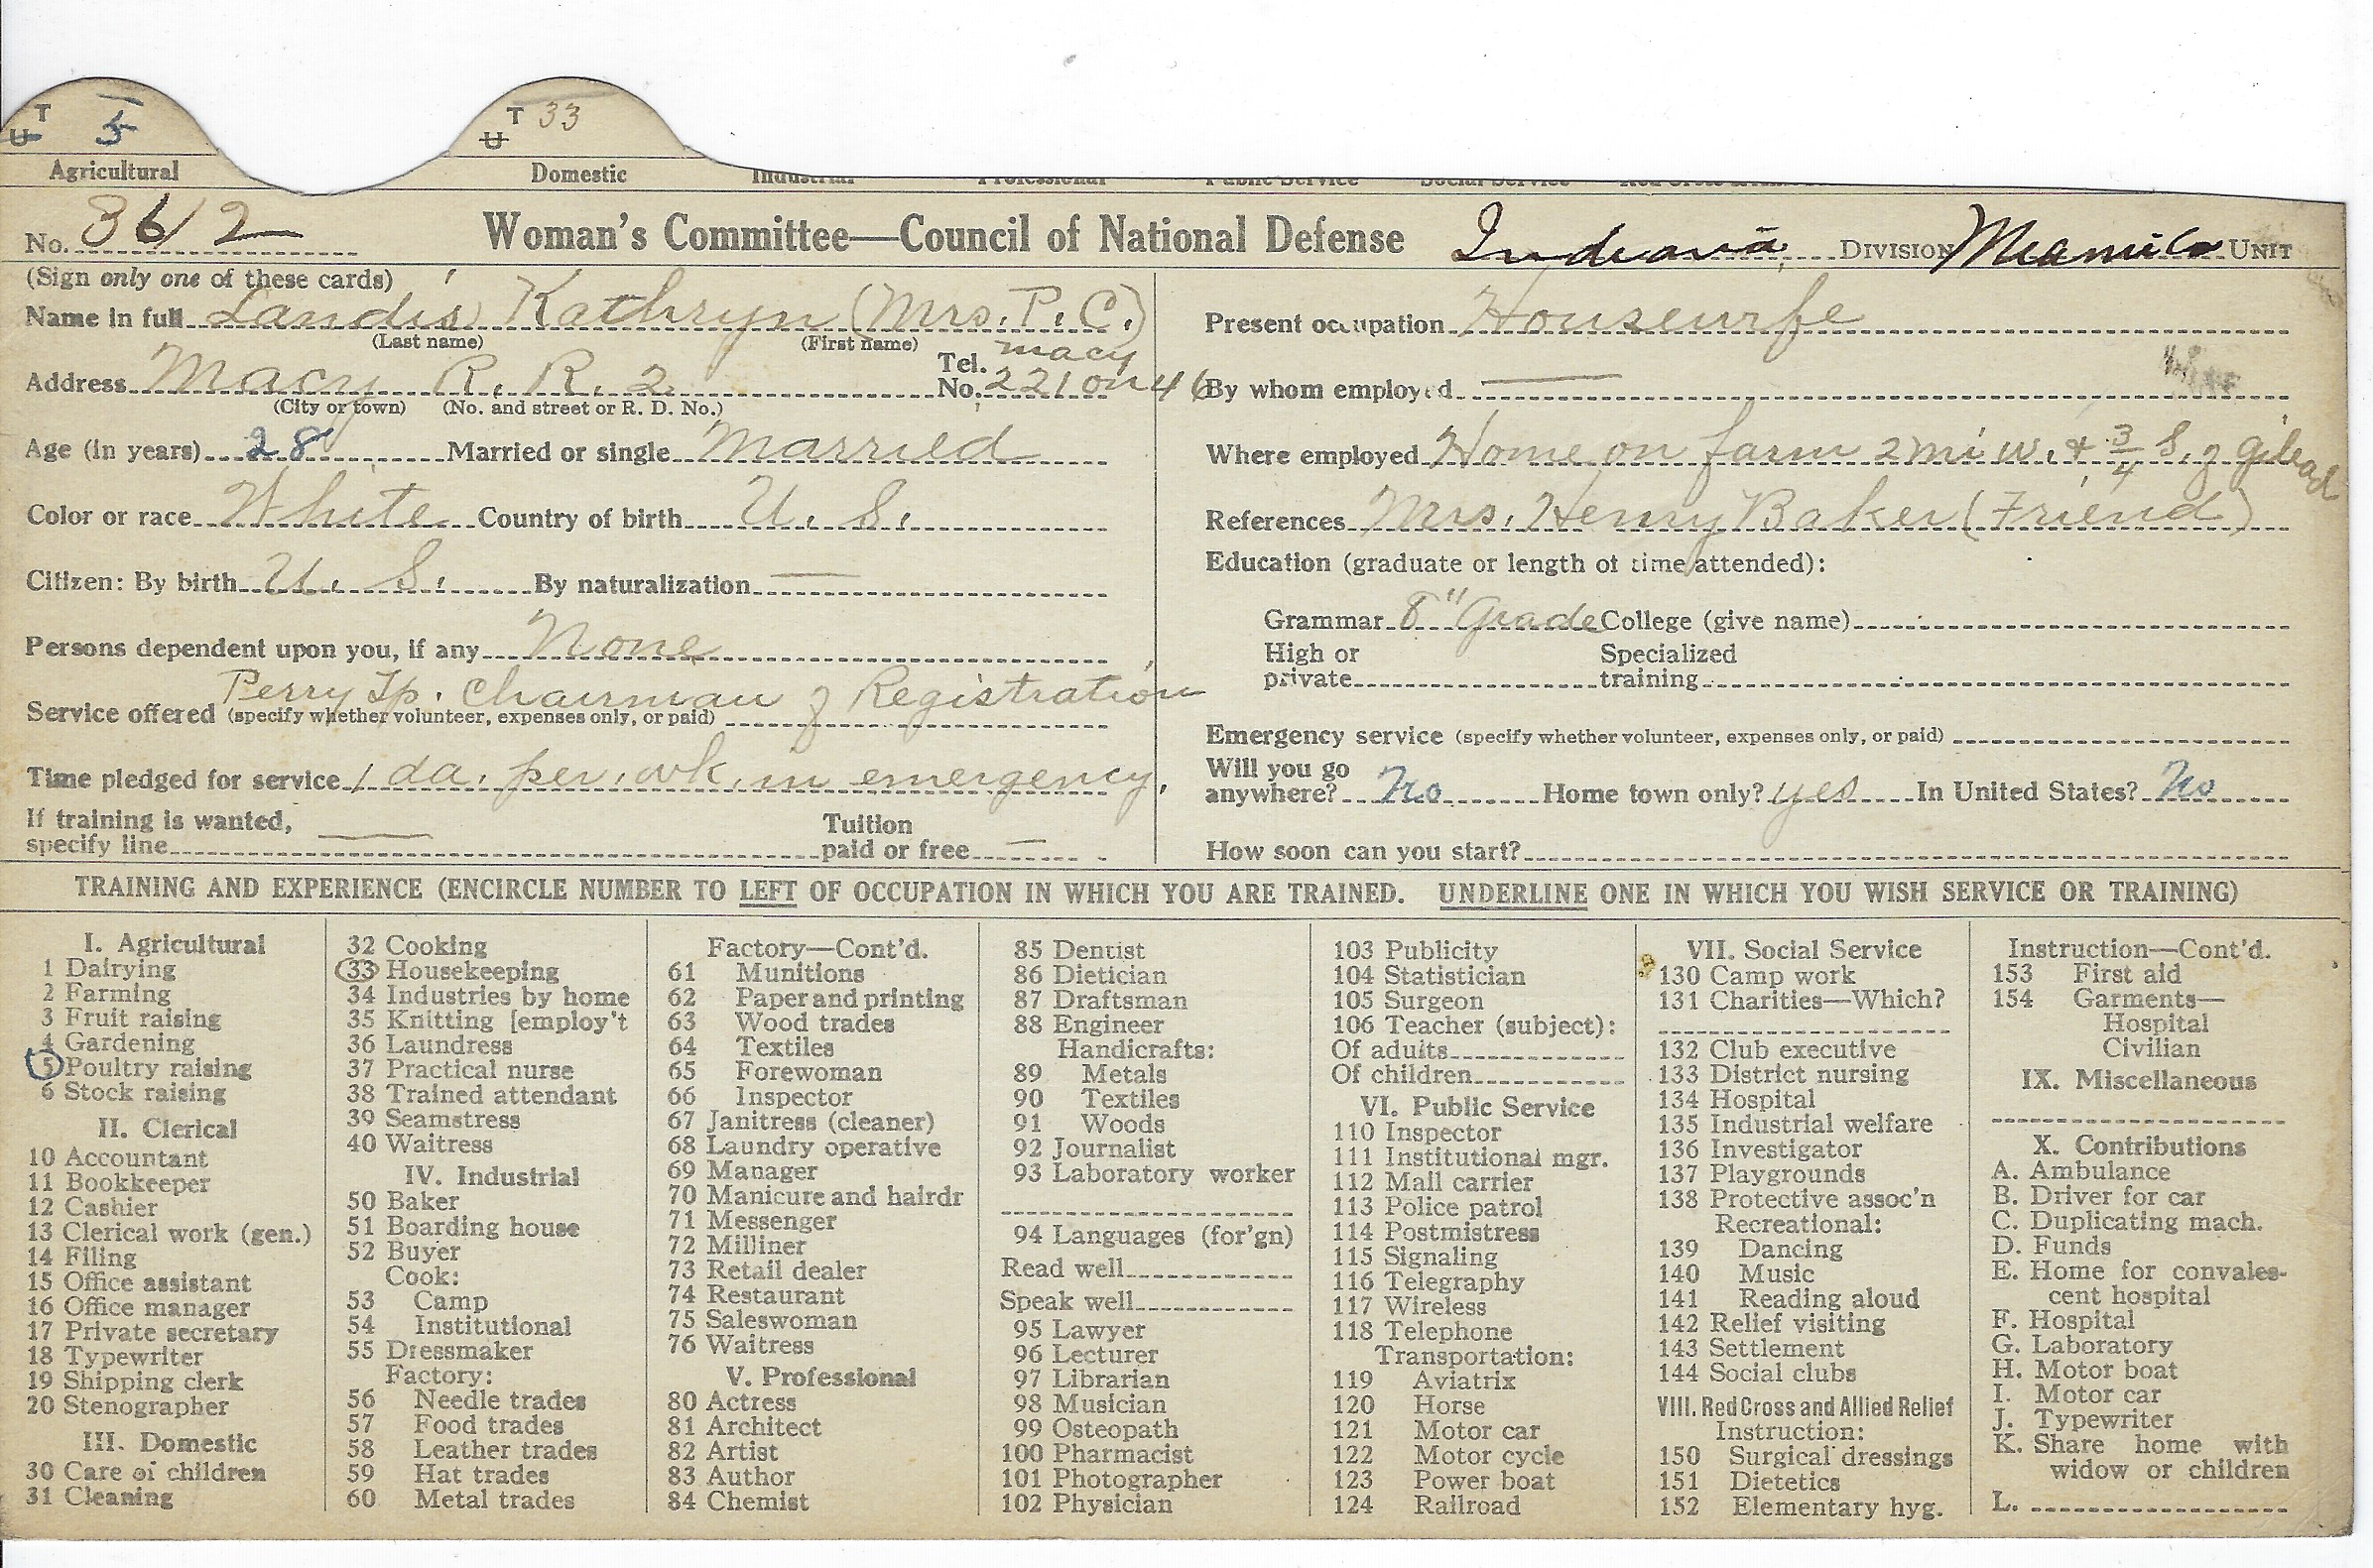 T 5 T 33
U U
Agricultural Domestic Industrial Professional Public Service Social Service
No. 3612 Woman's Committee—Council of National Defense Indiana DIVISION Miami Co UNIT
(Sign only one of these cards)
Name in full Landis Kathryn (Mrs. P. C.)
(Last name) (First name)
Address Macy R. R. 2 Tel. No. macy 221 on 46
(City or town) (No. and street or R. D. No.)
Age (in years) 28 Married or single Married
Color or race White Country of birth U. S.
Citizen: By birth U. S. By naturalization —
Persons dependent upon you, if any None
Perry Tp. Chairman of Registration
Service offered (specify whether volunteer, expenses only, or paid)
Time pledged for service 1 da. per. wk. in emergency.
If training is wanted, Tuition
specify line — paid or free —
Present occupation Housewife
By whom employed —
Where employed Home on farm 2 mi w. & 3/4 S. of Gilead
References Mrs. Henry Baker (Friend)
Education (graduate or length of time attended):
Grammar 8" Grade College (give name)
High or Specialized
private training
Emergency service (specify whether volunteer, expenses only, or paid)
Will you go
anywhere? No Home town only? yes In United States? No
How soon can you start?
TRAINING AND EXPERIENCE (ENCIRCLE NUMBER TO LEFT OF OCCUPATION IN WHICH YOU ARE TRAINED. UNDERLINE ONE IN WHICH YOU WISH SERVICE OR TRAINING)
I. Agricultural
1 Dairying
2 Farming
3 Fruit raising
4 Gardening
5 Poultry raising
6 Stock raising
II. Clerical
10 Accountant
11 Bookkeeper
12 Cashier
13 Clerical work (gen.)
14 Filing
15 Office assistant
16 Office manager
17 Private secretary
18 Typewriter
19 Shipping clerk
20 Stenographer
III. Domestic
30 Care of children
31 Cleaning
32 Cooking
33 Housekeeping
34 Industries by home
35 Knitting [employ't
36 Laundress
37 Practical nurse
38 Trained attendant
39 Seamstress
40 Waitress
IV. Industrial
50 Baker
51 Boarding house
52 Buyer
Cook:
53 Camp
54 Institutional
55 Dressmaker
Factory:
56 Needle trades
57 Food trades
58 Leather trades
59 Hat trades
60 Metal trades
Factory—Cont'd.
61 Munitions
62 Paper and printing
63 Wood trades
64 Textiles
65 Forewoman
66 Inspector
67 Janitress (cleaner)
68 Laundry operative
69 Manager
70 Manicure and hairdr
71 Messenger
72 Milliner
73 Retail dealer
74 Restaurant
75 Saleswoman
76 Waitress
V. Professional
80 Actress
81 Architect
82 Artist
83 Author
84 Chemist
85 Dentist
86 Dietician
87 Draftsman
88 Engineer
Handicrafts:
89 Metals
90 Textiles
91 Woods
92 Journalist
93 Laboratory worker
94 Languages (for'gn)
Read well
Speak well
95 Lawyer
96 Lecturer
97 Librarian
98 Musician
99 Osteopath
100 Pharmacist
101 Photographer
102 Physician
103 Publicity
104 Statistician
105 Surgeon
106 Teacher (subject):
Of adults
Of children
VI. Public Service
110 Inspector
111 Institutional mgr.
112 Mail carrier
113 Police patrol
114 Postmistress
115 Signaling
116 Telegraphy
117 Wireless
118 Telephone
Transportation:
119 Aviatrix
120 Horse
121 Motor car
122 Motor cycle
123 Power boat
124 Railroad
VII. Social Service
130 Camp work
131 Charities—Which?
132 Club executive
133 District nursing
134 Hospital
135 Industrial welfare
136 Investigator
137 Playgrounds
138 Protective assoc'n
Recreational:
139 Dancing
140 Music
141 Reading aloud
142 Relief visiting
143 Settlement
144 Social clubs
VIII. Red Cross and Allied Relief
Instruction:
150 Surgical dressings
151 Dietetics
152 Elementary hyg.
Instruction—Cont'd.
153 First aid
154 Garments—
Hospital
Civilian
IX. Miscellaneous
X. Contributions
A. Ambulance
B. Driver for car
C. Duplicating mach.
D. Funds
E. Home for convales-
cent hospital
F. Hospital
G. Laboratory
H. Motor boat
I. Motor car
J. Typewriter
K. Share home with
widow or children
L.